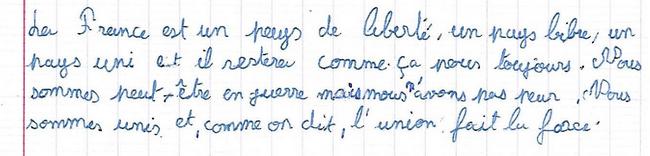 La France est un pays de liberté, un pays libre, un
pays uni et il restera comme ça pour toujours. Nous
sommes peut-être en guerre mais nous n'avons pas peur. Nous
sommes unis et, comme on dit, l'union fait la force.